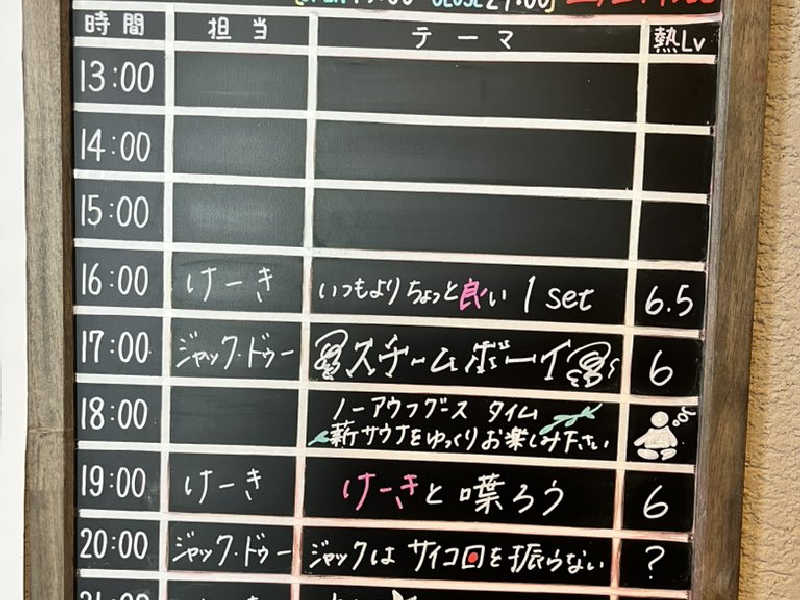 時間 担当 テーマ 熱Lv
13:00
14:00
15:00
16:00 けーき いつもよりちょっと良い 1 set 6.5
17:00 ジャック・ドゥー スチームボーイ 6
18:00 ノーアウフグース タイム
薪サウナをゆっくりお楽しみ下さい
19:00 けーき けーきと喋ろう 6
20:00 ジャック・ドゥー ジャックは サイコロを振らない ?